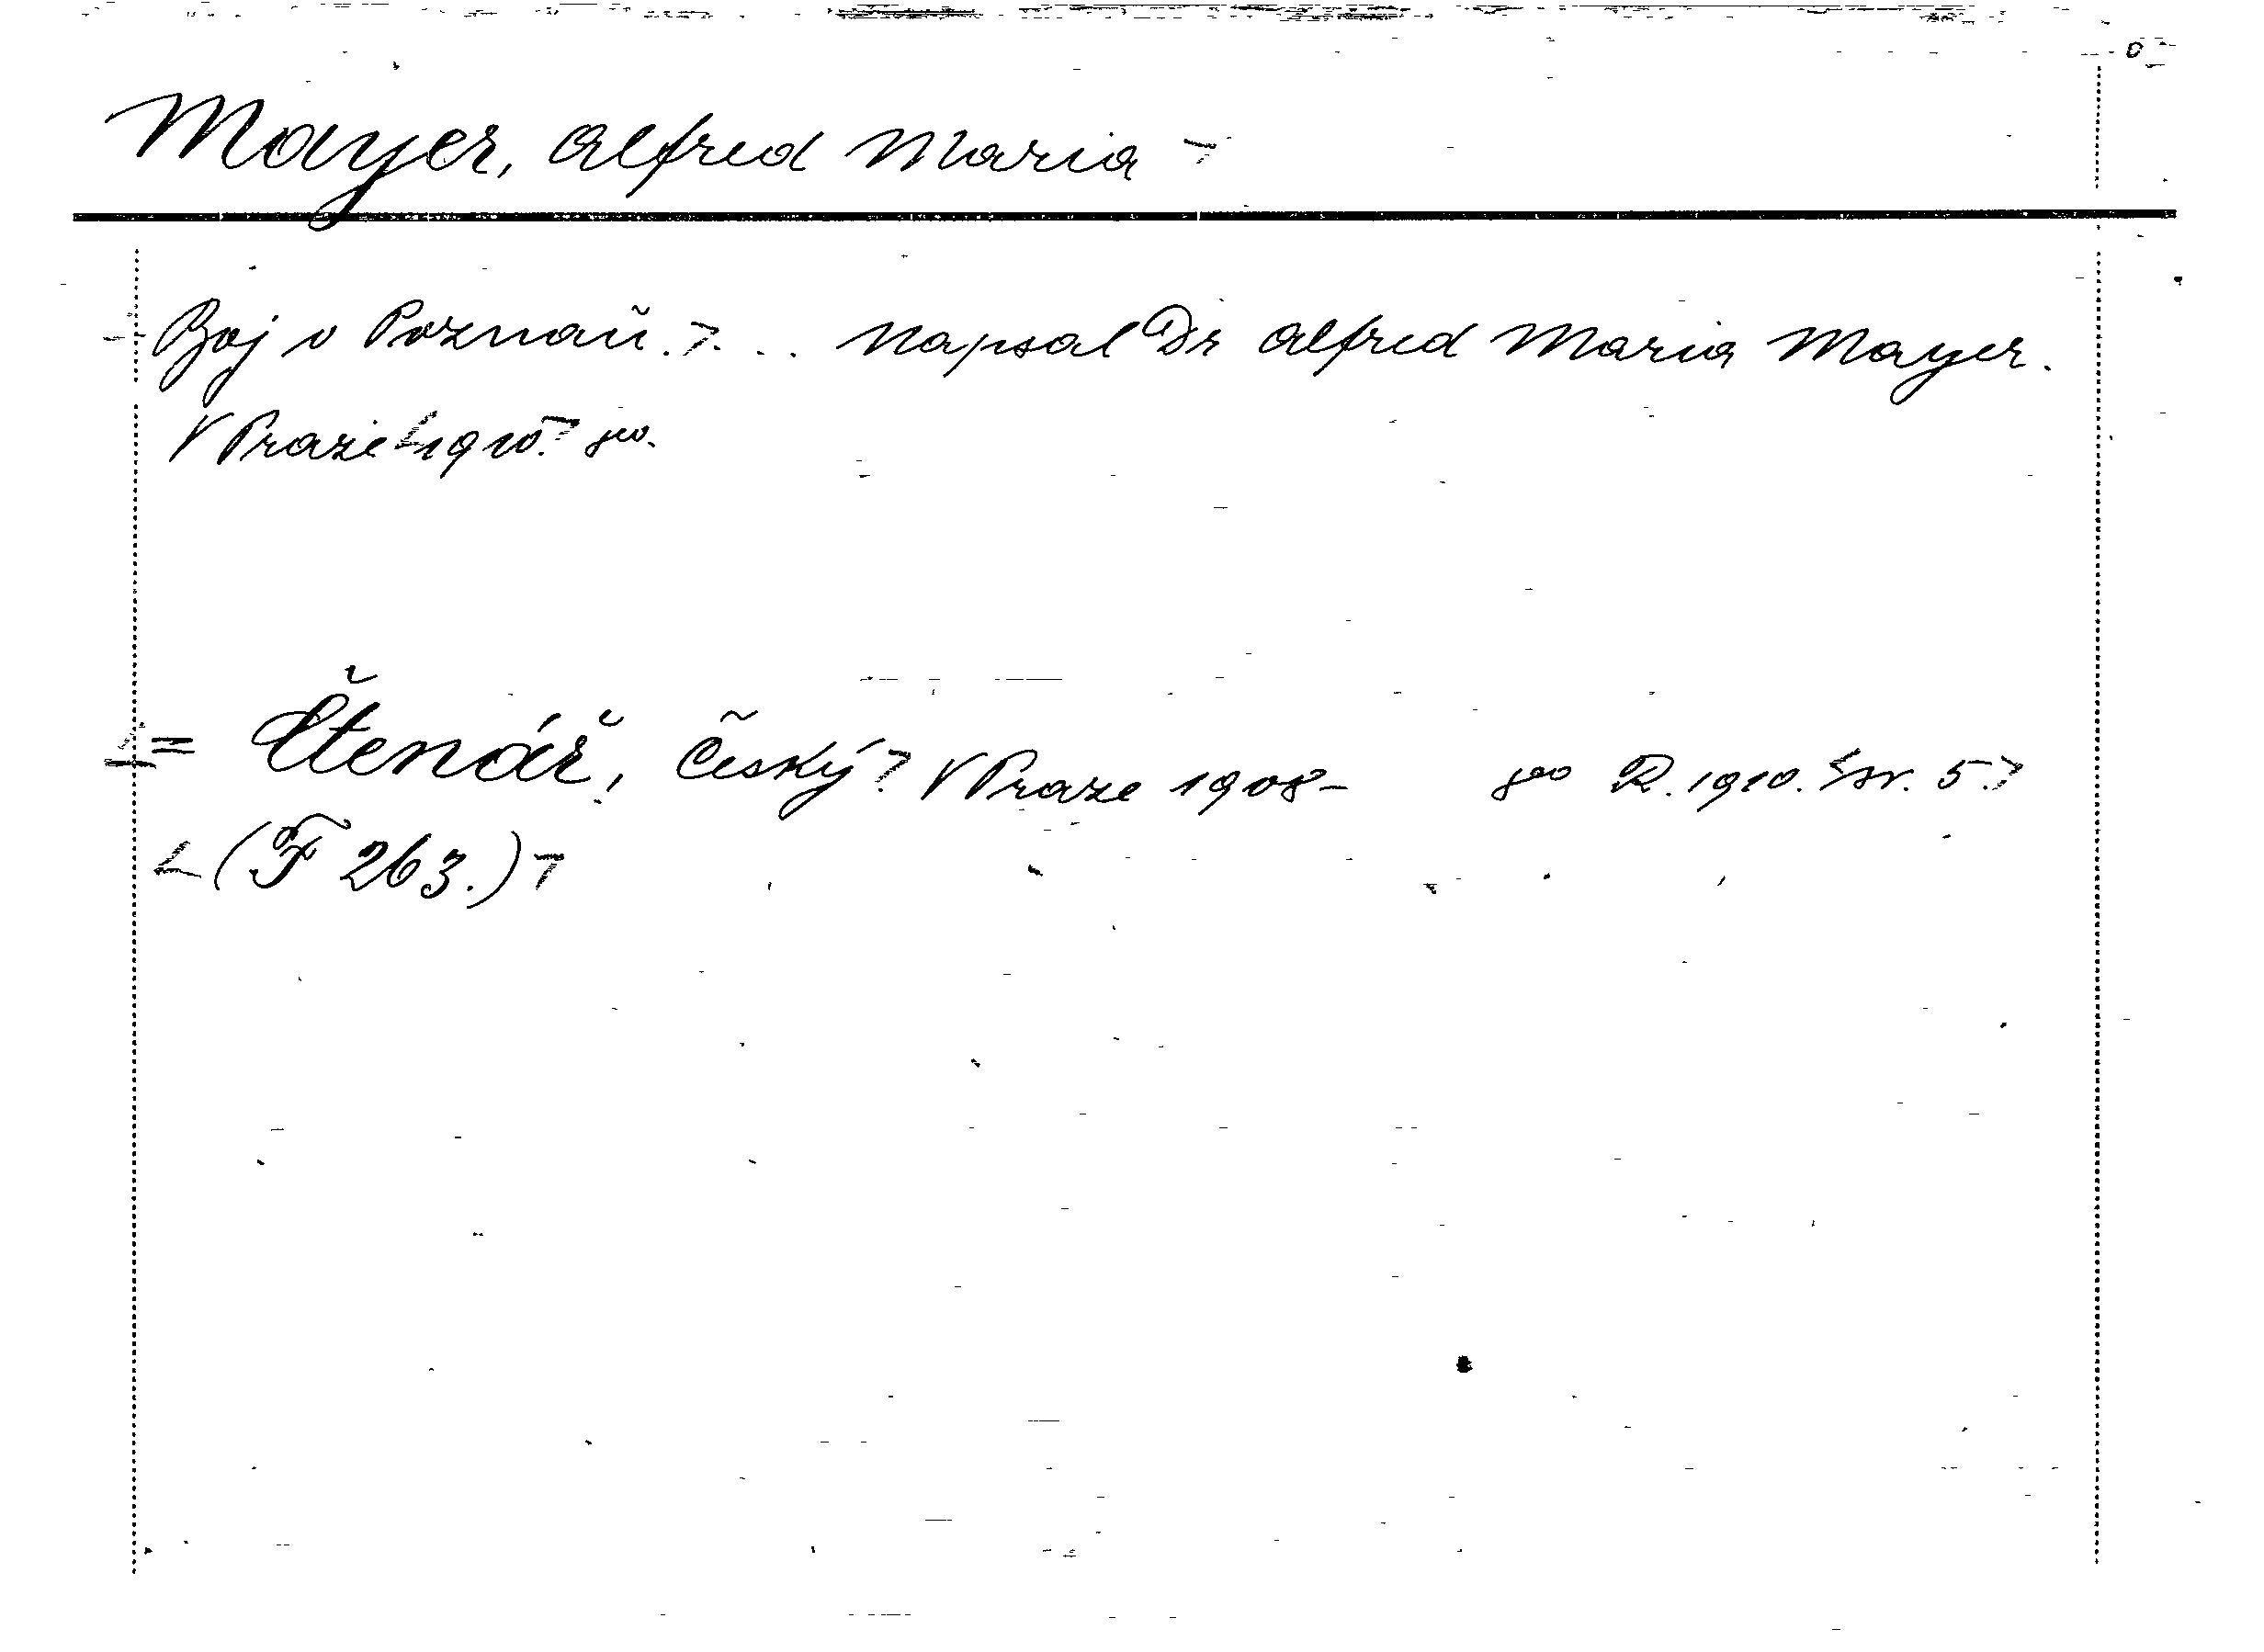 Mayer, Alfred Maria
Boj o Poznaň. ... Napsal Dr Alfred Maria Mayer.
V Praze 1910. 8°.
= Čtenář, Český V Praze 1908- 8° R. 1910. sv. 5.
(F 263.)